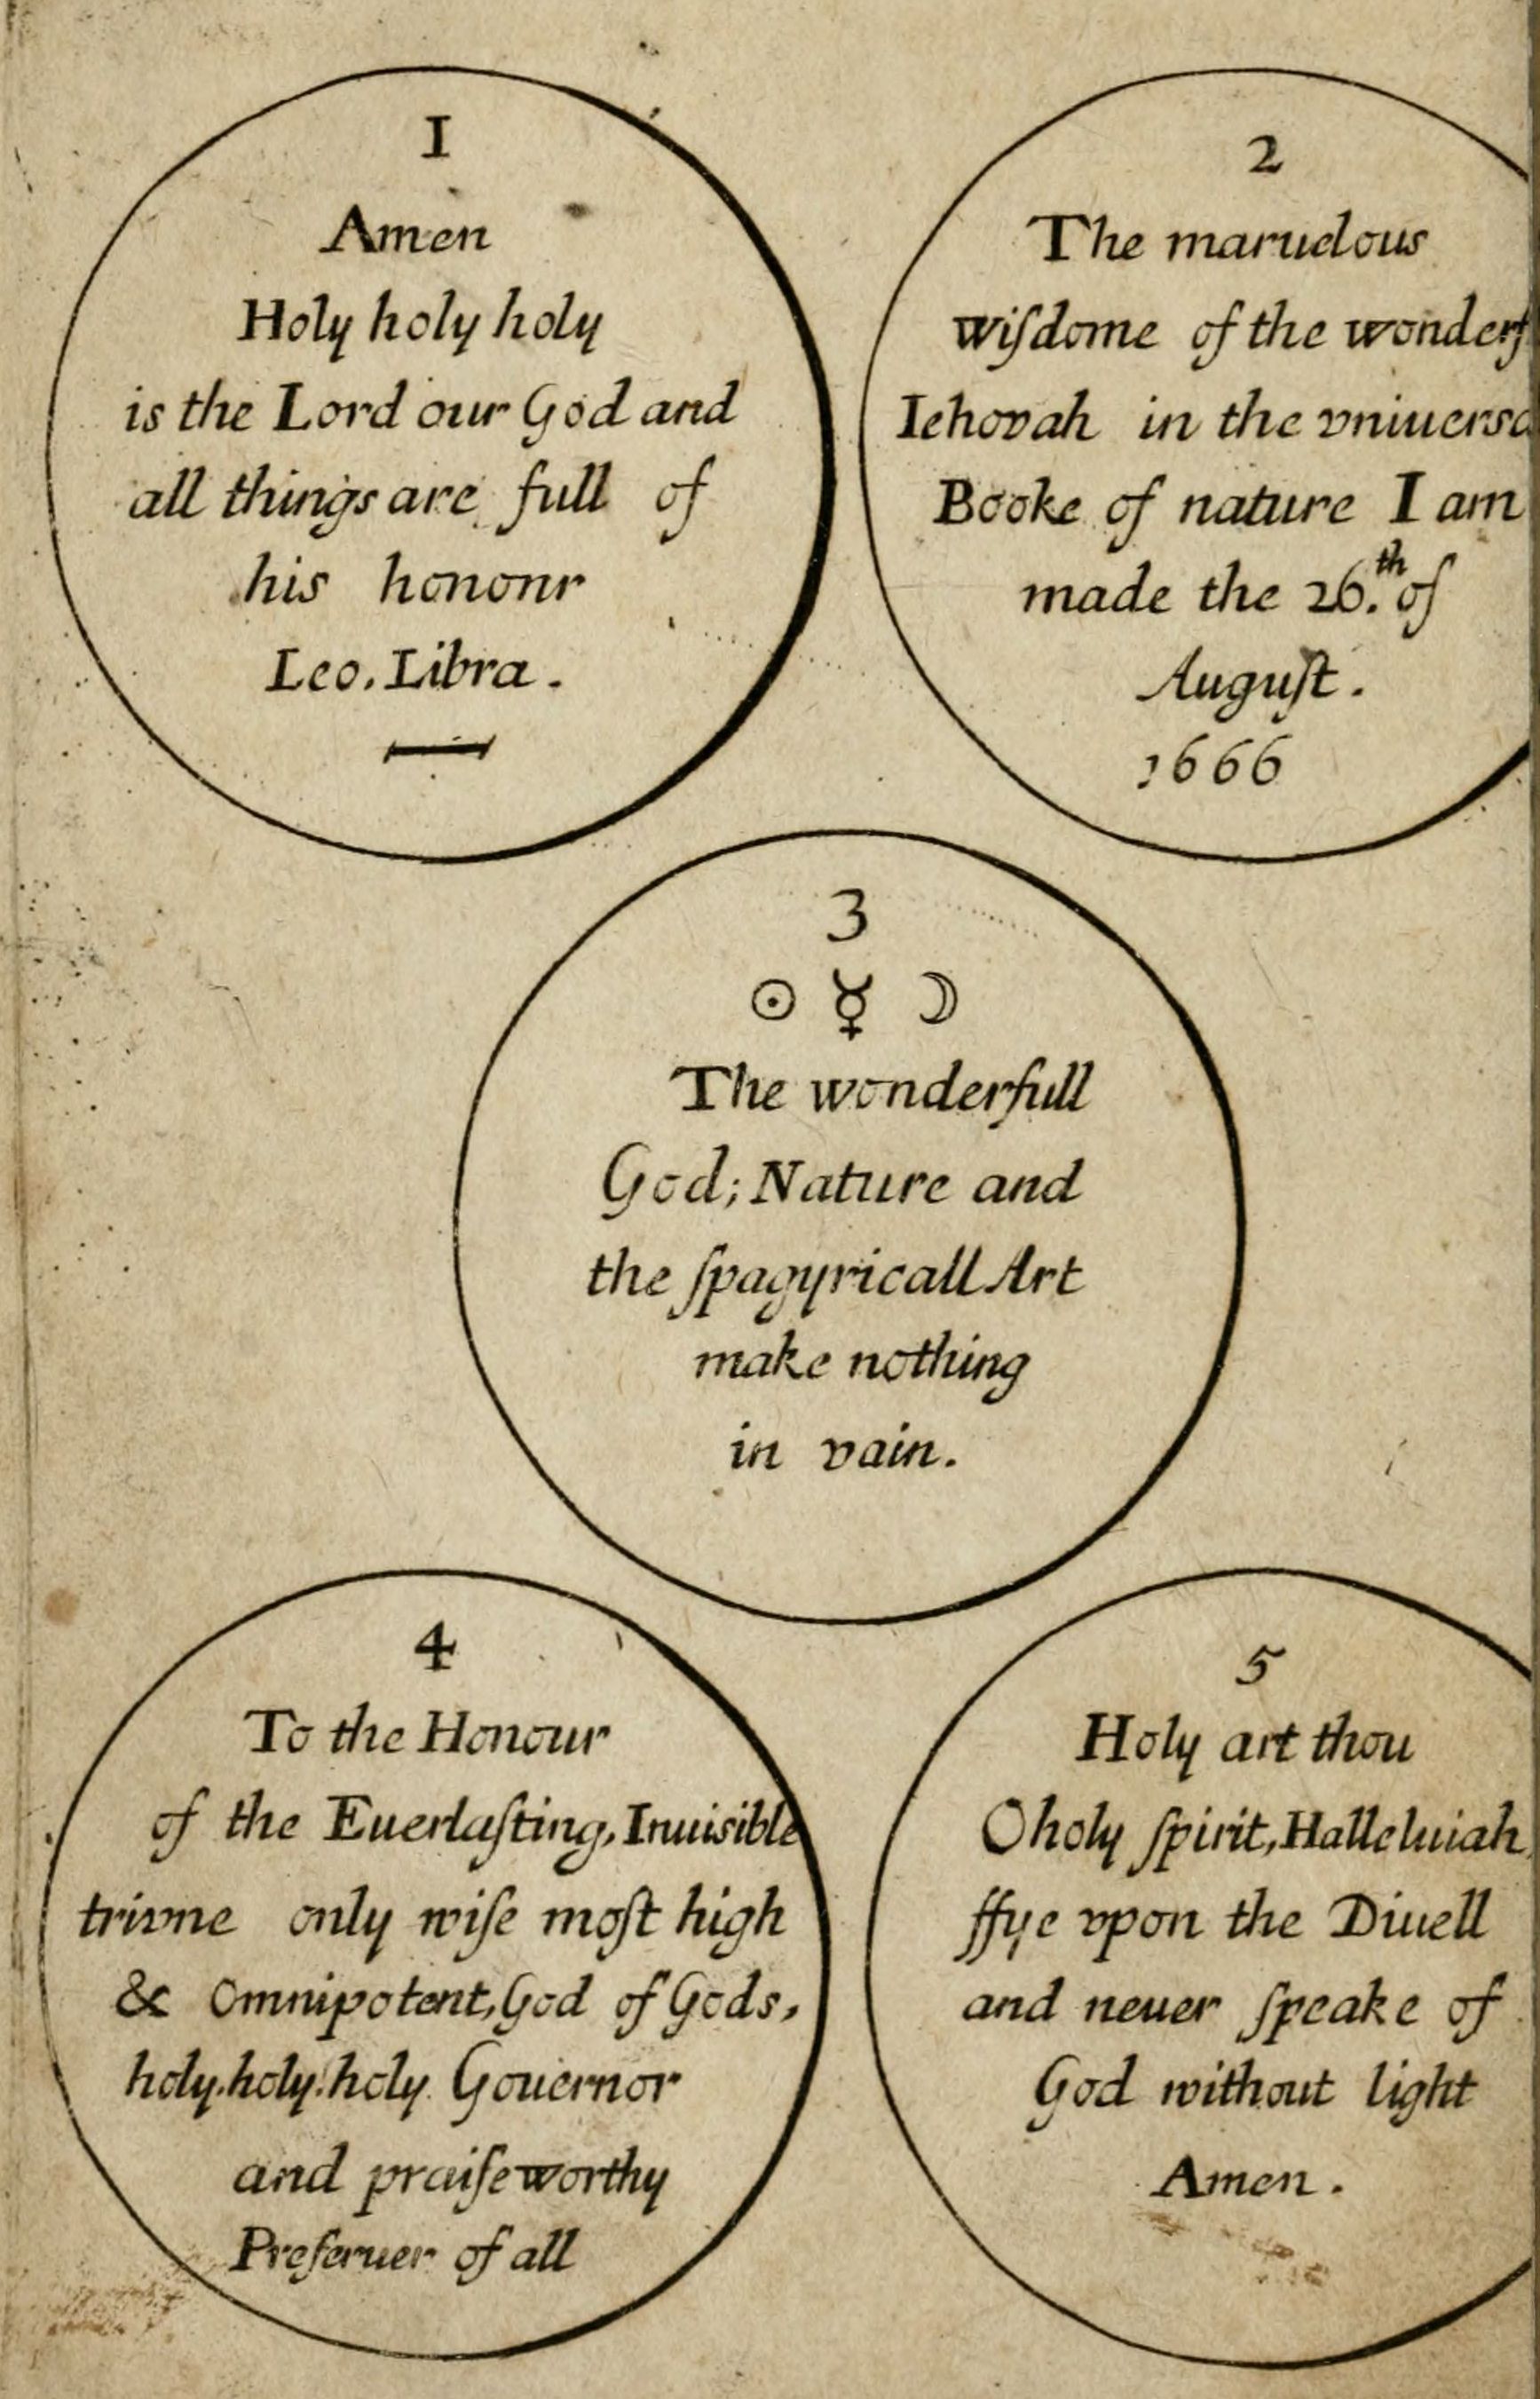 1
Amen
Holy holy holy
is the Lord our God and
all things are full of
his hononr
Leo. Libra.
2
The maruelous
wiſdome of the wonderf
Iehovah in the vniuersa
Booke of nature I am
made the 26.th of
Auguſt.
1666
3
☉ ☿ ☽
The wonderfull
God; Nature and
the ſpagyricall Art
make nothing
in vain.
4
To the Honour
of the Euerlaſting, Inuisible
trivne only wiſe moſt high
& Omnipotent, God of Gods,
holy. holy. holy. Gouernor
and praiſeworthy
Preſeruer of all
5
Holy art thou
O holy ſpirit, Halleluiah
ffye vpon the Diuell
and neuer ſpeake of
God without light
Amen.